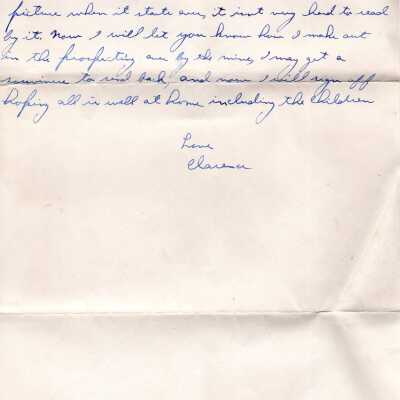 picture when it starts over, it isnt very hard to read
by it. Now I will let you know how I make out
on the prospecting over by the mine, I may get a
souvinere to send back, and now I will sign off
hoping all is well at home including the children
Love
Clarence